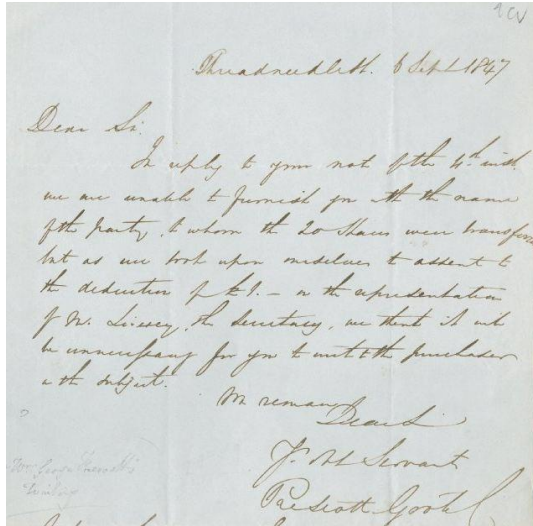 Threadneedle St. 6 Sept 1847
Dear Sir.
In reply to your not of the 4th inst.
we are unable to furnish you with the name
of the party, to whom the 20 Shares were transferr
but as we took upon ourselves to assent to
the deduction of the £1. – on the representation
of Mr. the Secretary, we think it will
be unnecessary for you to write to the purchaser
on the subject.
We remain
Dear Sir
Yr. Obt Servant
Prescott Grote